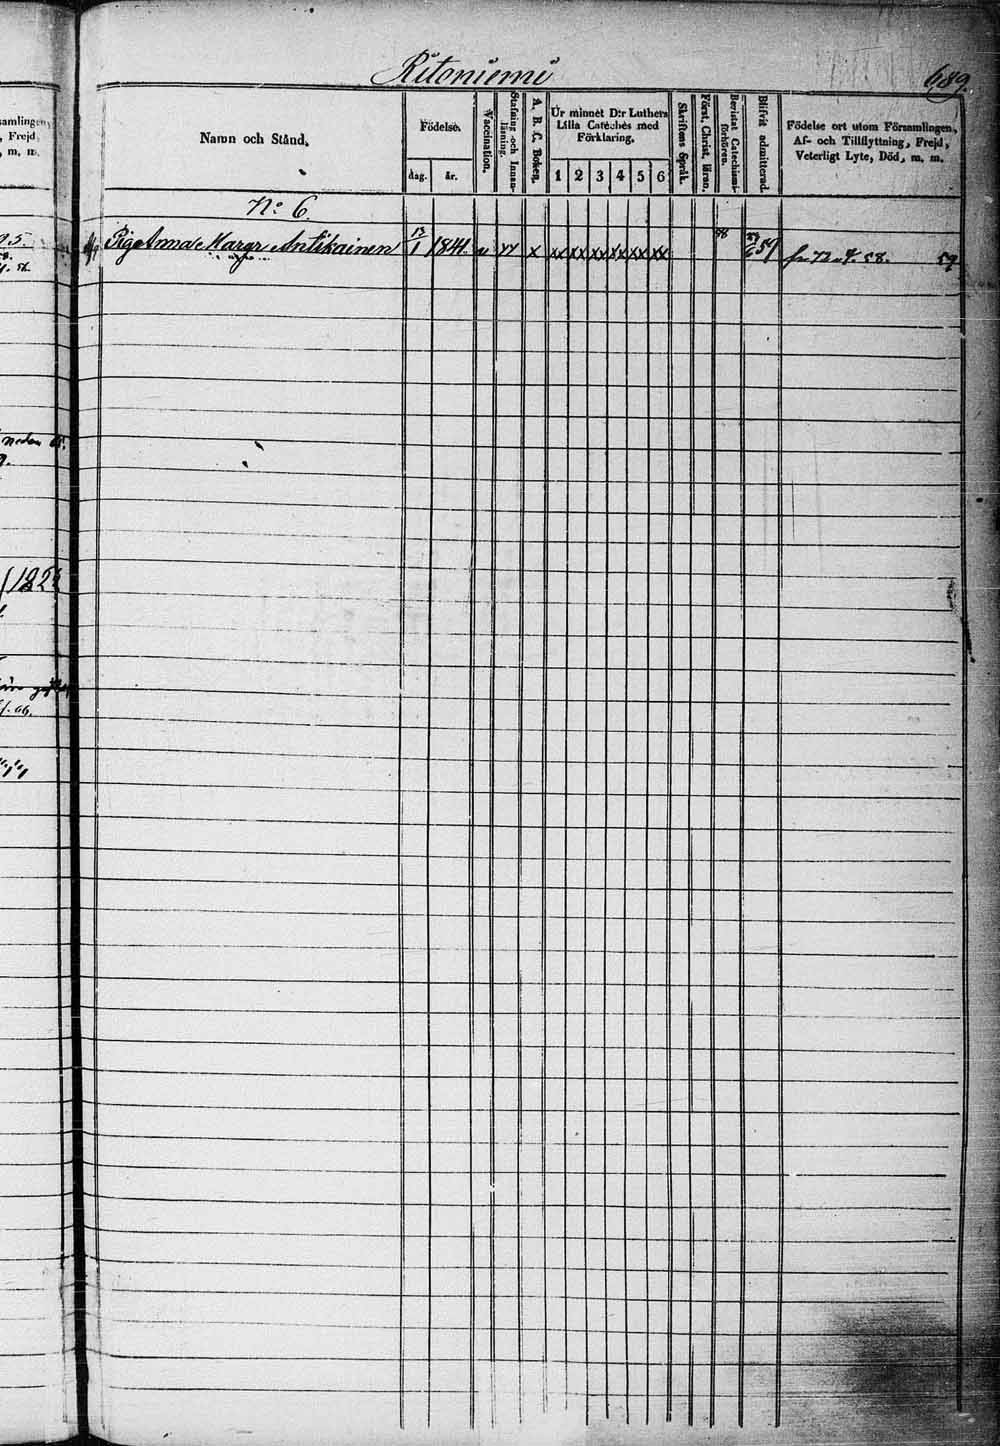 Ritoniemi
689.
Namn och Stånd.
Födelse.
dag.
år.
Vaccination.
Stafning och Innanläsning.
A. B. C. Boken.
Ur minnet D:r Luthers
Lilla Cateches med
Förklaring.
1 2 3 4 5 6
Skriftens Språk.
Först. Christ. läran.
Bevistat Catechismiförhören.
Blifvit admitterad.
Födelse ort utom Församlingen,
Af- och Tillflyttning, Frejd,
Veterligt Lyte, Död, m. m.
amlingen,
, Frejd,
, m. m.
No 6.
Pig. Anna Margr Antikainen 13/1 1841. v x xx xx xx xx xx xx 58 57 58. 59
nedan
1822